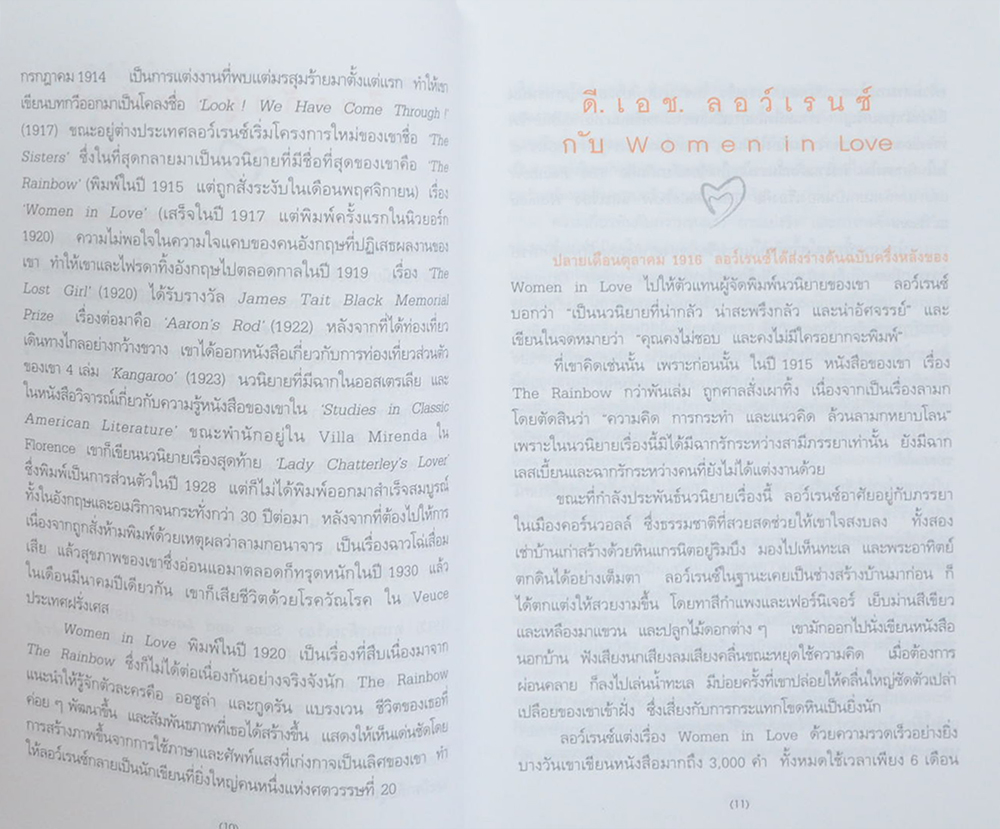 กรกฎาคม 1914 เป็นการแต่งงานที่พบแต่มรสุมร้ายมาตั้งแต่แรก ทำให้เขา
เขียนบทกวีออกมาเป็นโคลงชื่อ ‘Look ! We Have Come Through !’
(1917) ขณะอยู่ต่างประเทศลอว์เรนซ์เริ่มโครงการใหม่ของเขาชื่อ ‘The
Sisters’ ซึ่งในที่สุดกลายมาเป็นนวนิยายที่มีชื่อที่สุดของเขาคือ ‘The
Rainbow’ (พิมพ์ในปี 1915 แต่ถูกสั่งระงับในเดือนพฤศจิกายน) เรื่อง
‘Women in Love’ (เสร็จในปี 1917 แต่พิมพ์ครั้งแรกในนิวยอร์ก
1920) ความไม่พอใจในความใจแคบของคนอังกฤษที่ปฏิเสธผลงานของ
เขา ทำให้เขาและไฟรดาทิ้งอังกฤษไปตลอดกาลในปี 1919 เรื่อง ‘The
Lost Girl’ (1920) ได้รับรางวัล James Tait Black Memorial
Prize เรื่องต่อมาคือ ‘Aaron’s Rod’ (1922) หลังจากที่ได้ท่องเที่ยว
เดินทางไกลอย่างกว้างขวาง เขาได้ออกหนังสือเกี่ยวกับการท่องเที่ยวส่วนตัว
ของเขา 4 เล่ม ‘Kangaroo’ (1923) นวนิยายที่มีฉากในออสเตรเลีย และ
ในหนังสือวิจารณ์เกี่ยวกับความรู้หนังสือของเขาใน ‘Studies in Classic
American Literature’ ขณะพำนักอยู่ใน Villa Mirenda ใน
Florence เขาก็เขียนนวนิยายเรื่องสุดท้าย ‘Lady Chatterley’s Lover’
ซึ่งพิมพ์เป็นการส่วนตัวในปี 1928 แต่ก็ไม่ได้พิมพ์ออกมาสำเร็จสมบูรณ์
ทั้งในอังกฤษและอเมริกาจนกระทั่งกว่า 30 ปีต่อมา หลังจากที่ต้องไปให้การ
เนื่องจากถูกสั่งห้ามพิมพ์ด้วยเหตุผลว่าลามกอนาจาร เป็นเรื่องฉาวโฉ่เสื่อม
เสีย แล้วสุขภาพของเขาซึ่งอ่อนแอมาตลอดก็ทรุดหนักในปี 1930 แล้ว
ในเดือนมีนาคมปีเดียวกัน เขาก็เสียชีวิตด้วยโรควัณโรค ใน Veuce
ประเทศฝรั่งเศส
Women in Love พิมพ์ในปี 1920 เป็นเรื่องที่สืบเนื่องมาจาก
The Rainbow ซึ่งก็ไม่ได้ต่อเนื่องกันอย่างจริงจังนัก The Rainbow
แนะนำให้รู้จักตัวละครคือ ออซูล่า และกูดรัน แบรงเวน ชีวิตของเธอที่
ค่อย ๆ พัฒนาขึ้น และสัมพันธภาพที่เธอได้สร้างขึ้น แสดงให้เห็นเด่นชัดโดย
การสร้างภาพขึ้นจากการใช้ภาษาและศัพท์แสงที่เก่งกาจเป็นเลิศของเขา ทำ
ให้ลอว์เรนซ์กลายเป็นนักเขียนที่ยิ่งใหญ่คนหนึ่งแห่งศตวรรษที่ 20
(10)
ดี. เอช. ลอว์เรนซ์
กับ Women in Love
ปลายเดือนตุลาคม 1916 ลอว์เรนซ์ได้ส่งร่างต้นฉบับครึ่งหลังของ
Women in Love ไปให้ตัวแทนผู้จัดพิมพ์นวนิยายของเขา ลอว์เรนซ์
บอกว่า “เป็นนวนิยายที่น่ากลัว น่าสะพรึงกลัว และน่าอัศจรรย์” และ
เขียนในจดหมายว่า “คุณคงไม่ชอบ และคงไม่มีใครอยากจะพิมพ์”
ที่เขาคิดเช่นนั้น เพราะก่อนนั้น ในปี 1915 หนังสือของเขา เรื่อง
The Rainbow กว่าพันเล่ม ถูกศาลสั่งเผาทิ้ง เนื่องจากเป็นเรื่องลามก
โดยตัดสินว่า “ความคิด การกระทำ และแนวคิด ล้วนลามกหยาบโลน”
เพราะในนวนิยายเรื่องนี้มิได้มีฉากรักระหว่างสามีภรรยาเท่านั้น ยังมีฉาก
เลสเบี้ยนและฉากรักระหว่างคนที่ยังไม่ได้แต่งงานด้วย
ขณะที่กำลังประพันธ์นวนิยายเรื่องนี้ ลอว์เรนซ์อาศัยอยู่กับภรรยา
ในเมืองคอร์นวอลล์ ซึ่งธรรมชาติที่สวยสดช่วยให้เขาใจสงบลง ทั้งสอง
เช่าบ้านเก่าสร้างด้วยหินแกรนิตอยู่ริมบึง มองไปเห็นทะเล และพระอาทิตย์
ตกดินได้อย่างเต็มตา ลอว์เรนซ์ในฐานะเคยเป็นช่างสร้างบ้านมาก่อน ก็
ได้ตกแต่งให้สวยงามขึ้น โดยทาสีกำแพงและเฟอร์นิเจอร์ เย็บม่านสีเขียว
และเหลืองมาแขวน และปลูกไม้ดอกต่าง ๆ เขามักออกไปนั่งเขียนหนังสือ
นอกบ้าน ฟังเสียงนกเสียงลมเสียงคลื่นขณะหยุดใช้ความคิด เมื่อต้องการ
ผ่อนคลาย ก็ลงไปเล่นน้ำทะเล มีบ่อยครั้งที่เขาปล่อยให้คลื่นใหญ่ซัดตัวเปล่า
เปลือยของเขาเข้าฝั่ง ซึ่งเสี่ยงกับการกระแทกโขดหินเป็นยิ่งนัก
ลอว์เรนซ์แต่งเรื่อง Women in Love ด้วยความรวดเร็วอย่างยิ่ง
บางวันเขาเขียนหนังสือมากถึง 3,000 คำ ทั้งหมดใช้เวลาเพียง 6 เดือน
(11)